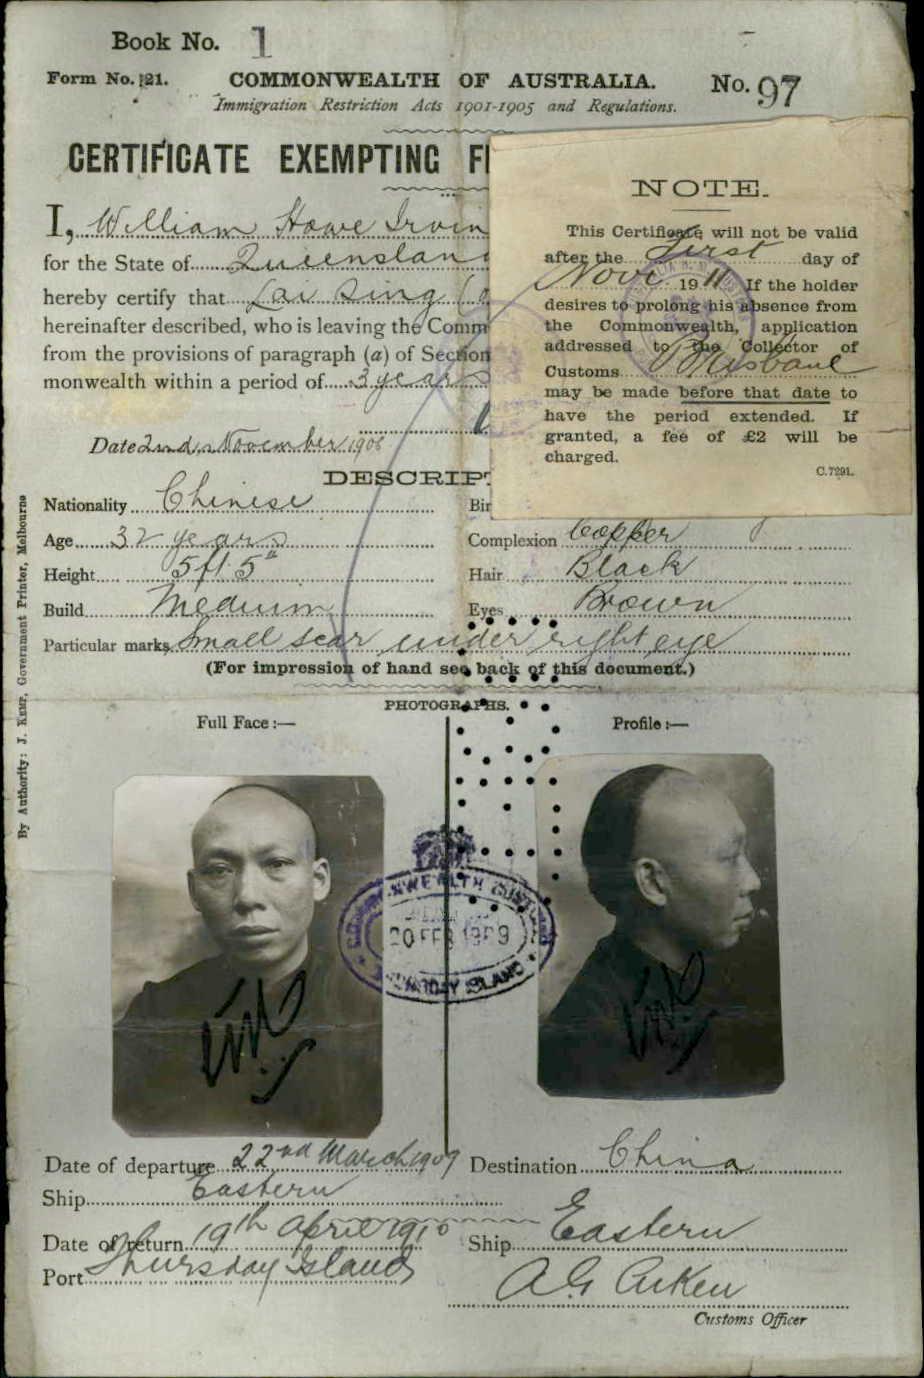 Book No. 1
Form No. 21. COMMONWEALTH OF AUSTRALIA. No. 97
Immigration Restriction Acts 1901-1905 and Regulations.
CERTIFICATE EXEMPTING
I, William Howe Irvin
for the State of Queensland
hereby certify that Lai Sing
hereinafter described, who is leaving the Comm
from the provisions of paragraph (a) of Section
monwealth within a period of 3 years
Date 2nd November 1908
NOTE.
This Certificate will not be valid
after the First day of
Novr 1911 If the holder
desires to prolong his absence from
the Commonwealth, application
addressed to the Collector of
Customs Brisbane
may be made before that date to
have the period extended. If
granted, a fee of £2 will be
charged.
C.7291.
DESCRIPT
Nationality Chinese Bir
Age 32 years Complexion Copper
Height 5ft 5" Hair Black
Build Medium Eyes Brown
Particular marks Small scar under right eye
(For impression of hand see back of this document.)
PHOTOGRAPHS.
Full Face :— Profile :—
COMMONWEALTH CUSTOMS
20 FEB 1909
THURSDAY ISLAND
Date of departure 22nd March 1909 Destination China
Ship Eastern
Date of return 19th April 1910 Ship Eastern
Port Thursday Island
A G Aiken
Customs Officer
By Authority: J. Kemp, Government Printer, Melbourne